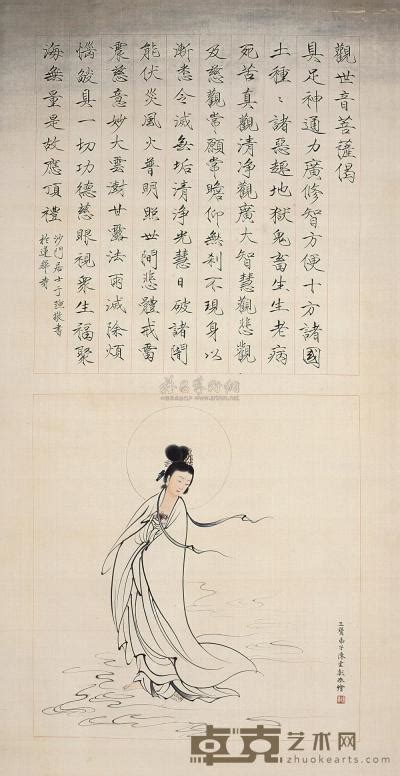 觀世音菩薩偈
具足神通力廣修智方便十方諸國
土種〻諸惡趣地獄鬼畜生生老病
死苦真觀清淨觀廣大智慧觀悲觀
及慈觀常願常瞻仰無刹不現身以
漸悉令滅無垢清淨光慧日破諸闇
能伏災風火普明照世間悲體戒雷
震慈意妙大雲澍甘露法雨滅除煩
惱燄具一切功德慈眼視衆生福聚
海無量是故應頂禮
敬書
於蓮華寺
三寶弟子陳雲彰敬繪
卓克艺术网